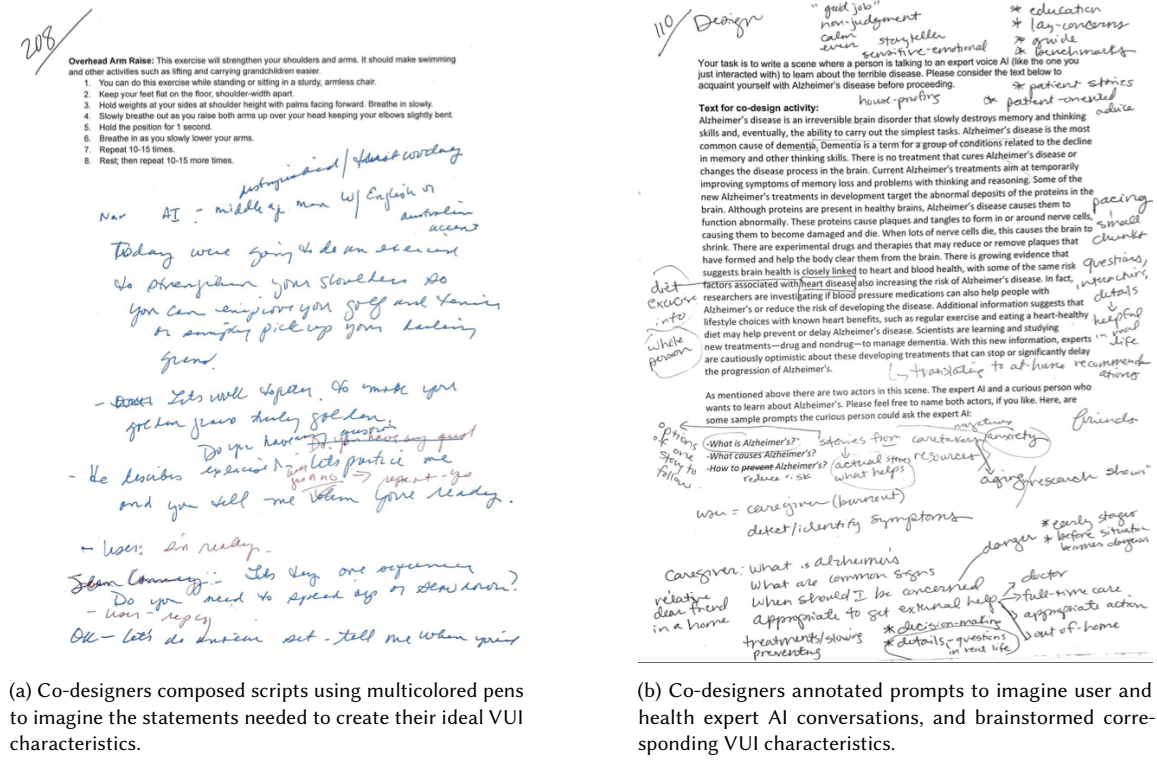 208/
Overhead Arm Raise: This exercise will strengthen your shoulders and arms. It should make swimming
and other activities such as lifting and carrying grandchildren easier.
1. You can do this exercise while standing or sitting in a sturdy, armless chair.
2. Keep your feet flat on the floor, shoulder-width apart.
3. Hold weights at your sides at shoulder height with palms facing forward. Breathe in slowly.
4. Slowly breathe out as you raise both arms up over your head keeping your elbows slightly bent.
5. Hold the position for 1 second.
6. Breathe in as you slowly lower your arms.
7. Repeat 10-15 times.
8. Rest; then repeat 10-15 more times.
distinguished /
AI - middle age man w/ English or
australian
accent
Today were going to do an exercise
to strengthen your shoulders so
you can improve you golf and tennis
or simply pick up your darling
grand.
- Lets work together to make you
golden years truly golden.
Do you have any questions
- He describes exercise lets practice me
and you tell me when you're ready.
- User: I'm ready.
Sean Connery: - Lets try one sequence
Do you need to speed up or slow down?
- user - reply
OK - let's do another set - tell me when you're
110/ Design
"good job"
non-judgment
calm
even storyteller
sensitive-emotional
* education
* lay-concerns
* guide
* benchmarks
Your task is to write a scene where a person is talking to an expert voice AI (like the one you
just interacted with) to learn about the terrible disease. Please consider the text below to
acquaint yourself with Alzheimer's disease before proceeding.
* patient stories
* patient-oriented
advice
Text for co-design activity:
Alzheimer's disease is an irreversible brain disorder that slowly destroys memory and thinking
skills and, eventually, the ability to carry out the simplest tasks. Alzheimer's disease is the most
common cause of dementia. Dementia is a term for a group of conditions related to the decline
in memory and other thinking skills. There is no treatment that cures Alzheimer's disease or
changes the disease process in the brain. Current Alzheimer's treatments aim at temporarily
improving symptoms of memory loss and problems with thinking and reasoning. Some of the
new Alzheimer's treatments in development target the abnormal deposits of the proteins in the
brain. Although proteins are present in healthy brains, Alzheimer's disease causes them to
function abnormally. These proteins cause plaques and tangles to form in or around nerve cells,
causing them to become damaged and die. When lots of nerve cells die, this causes the brain to
shrink. There are experimental drugs and therapies that may reduce or remove plaques that
have formed and help the body clear them from the brain. There is growing evidence that
suggests brain health is closely linked to heart and blood health, with some of the same risk
factors associated with heart disease also increasing the risk of Alzheimer's disease. In fact,
researchers are investigating if blood pressure medications can also help people with
Alzheimer's or reduce the risk of developing the disease. Additional information suggests that
lifestyle choices with known heart benefits, such as regular exercise and eating a heart-healthy
diet may help prevent or delay Alzheimer's disease. Scientists are learning and studying
new treatments—drug and nondrug—to manage dementia. With this new information, experts
are cautiously optimistic about these developing treatments that can stop or significantly delay
the progression of Alzheimer's.
pacing
small
chunks
questions,
details
helpful
in real
life
diet
exercise
info
whole
person
translating to at-home recommend
ations
As mentioned above there are two actors in this scene. The expert AI and a curious person who
wants to learn about Alzheimer's. Please feel free to name both actors, if you like. Here, are
some sample prompts the curious person could ask the expert AI:
friends
options
of one
story to
follow
-What is Alzheimer's? stories from caretakers anxiety
-What causes Alzheimer's?
-How to prevent Alzheimer's? actual stories resources
reduce risk what helps
aging/research shows"
user = caregiver (burnout)
detect/identify symptoms
danger * early stages
* before situation
becomes dangerous
Caregiver: what is alzheimers
What are common signs
relative
dear friend
in a home
when should I be concerned
appropriate to get external help
doctor
full-time care
appropriate action
out of-home
* decision-making
treatments/slowing
preventing
* details - questions
in real life
(a) Co-designers composed scripts using multicolored pens
to imagine the statements needed to create their ideal VUI
characteristics.
(b) Co-designers annotated prompts to imagine user and
health expert AI conversations, and brainstormed corre-
sponding VUI characteristics.